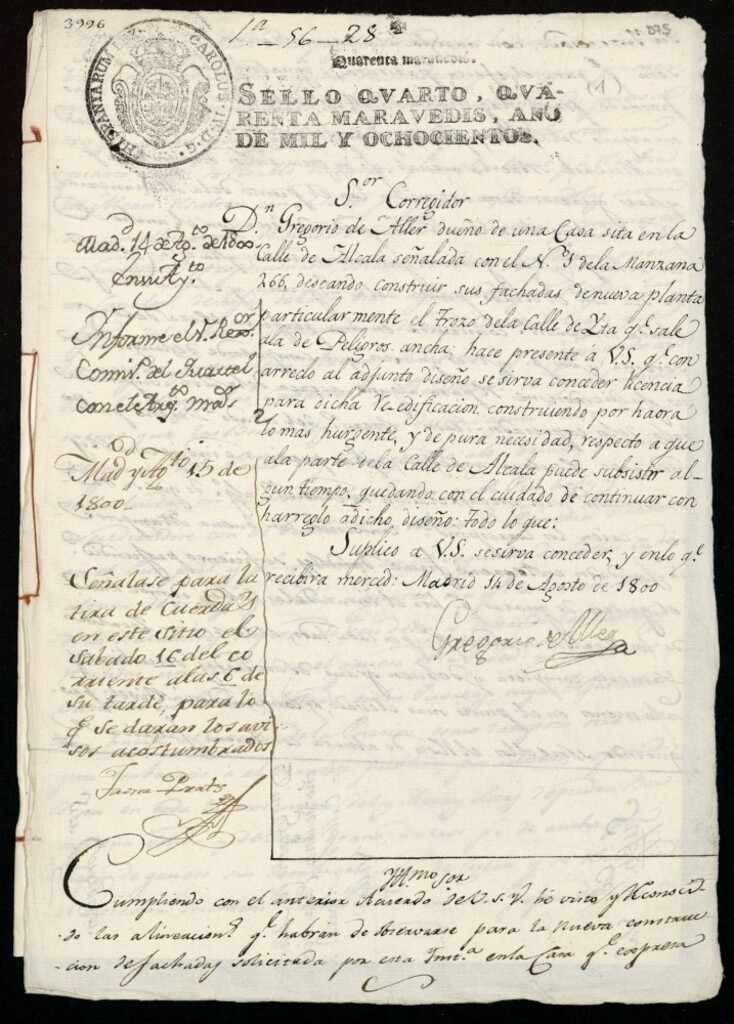 3996
1ª_56_28
075
Quarenta maravedis.
(1)
HISPANIARUM REX CAROLUS IV D. G.
SELLO QVARTO, QVA-
RENTA MARAVEDIS, AÑO
DE MIL Y OCHOCIENTOS.
S.or Corregidor
D.n Gregorio de Aller dueño de una Casa sita en la
Calle de Alcala señalada con el N.º 1 de la Manzana
266, deseando construir sus fachadas de nueva planta
particularmente el trozo dela Calle de q.e sale
ala de Peligros ancha; hace presente à V.S. q.e con
arreclo al adjunto diseño se sirva conceder licencia
para dicha Re-edificacion construiendo por haora
lo mas hurgente, y de pura necesidad, respecto a que
ala parte dela Calle de Alcala puede subsistir al-
gun tiempo, quedando con el cuidado de continuar con
harreglo a dicho, diseño: todo lo que:
Suplico a V.S. se sirva conceder, y en lo q.e
recibira merced: Madrid 14 de Agosto de 1800
Gregorio de Aller
Mad.d 14 de Ag.to de 1800
En su Ay.to
Informe el S.r Rex.or
Comis.º del Quartel
con el Arq.to m.or
Mad.d y Ag.to 15 de
1800
Señalase para la
tira de Cuerdas
en este sitio el
Sabado 16 del co
rriente alas 6 de
su tarde, para lo
q.e se daran los avi-
sos acostumbrados
Prats
Yll.mo Sor
Cumpliendo con el anterior Acuerdo de V.S.Y. he visto y Reconoci-
do las alineacion.s q.e habran de observarse para la nueva construc
cion de fachadas solicitada por esta Inst.a en la Casa q.e expresa